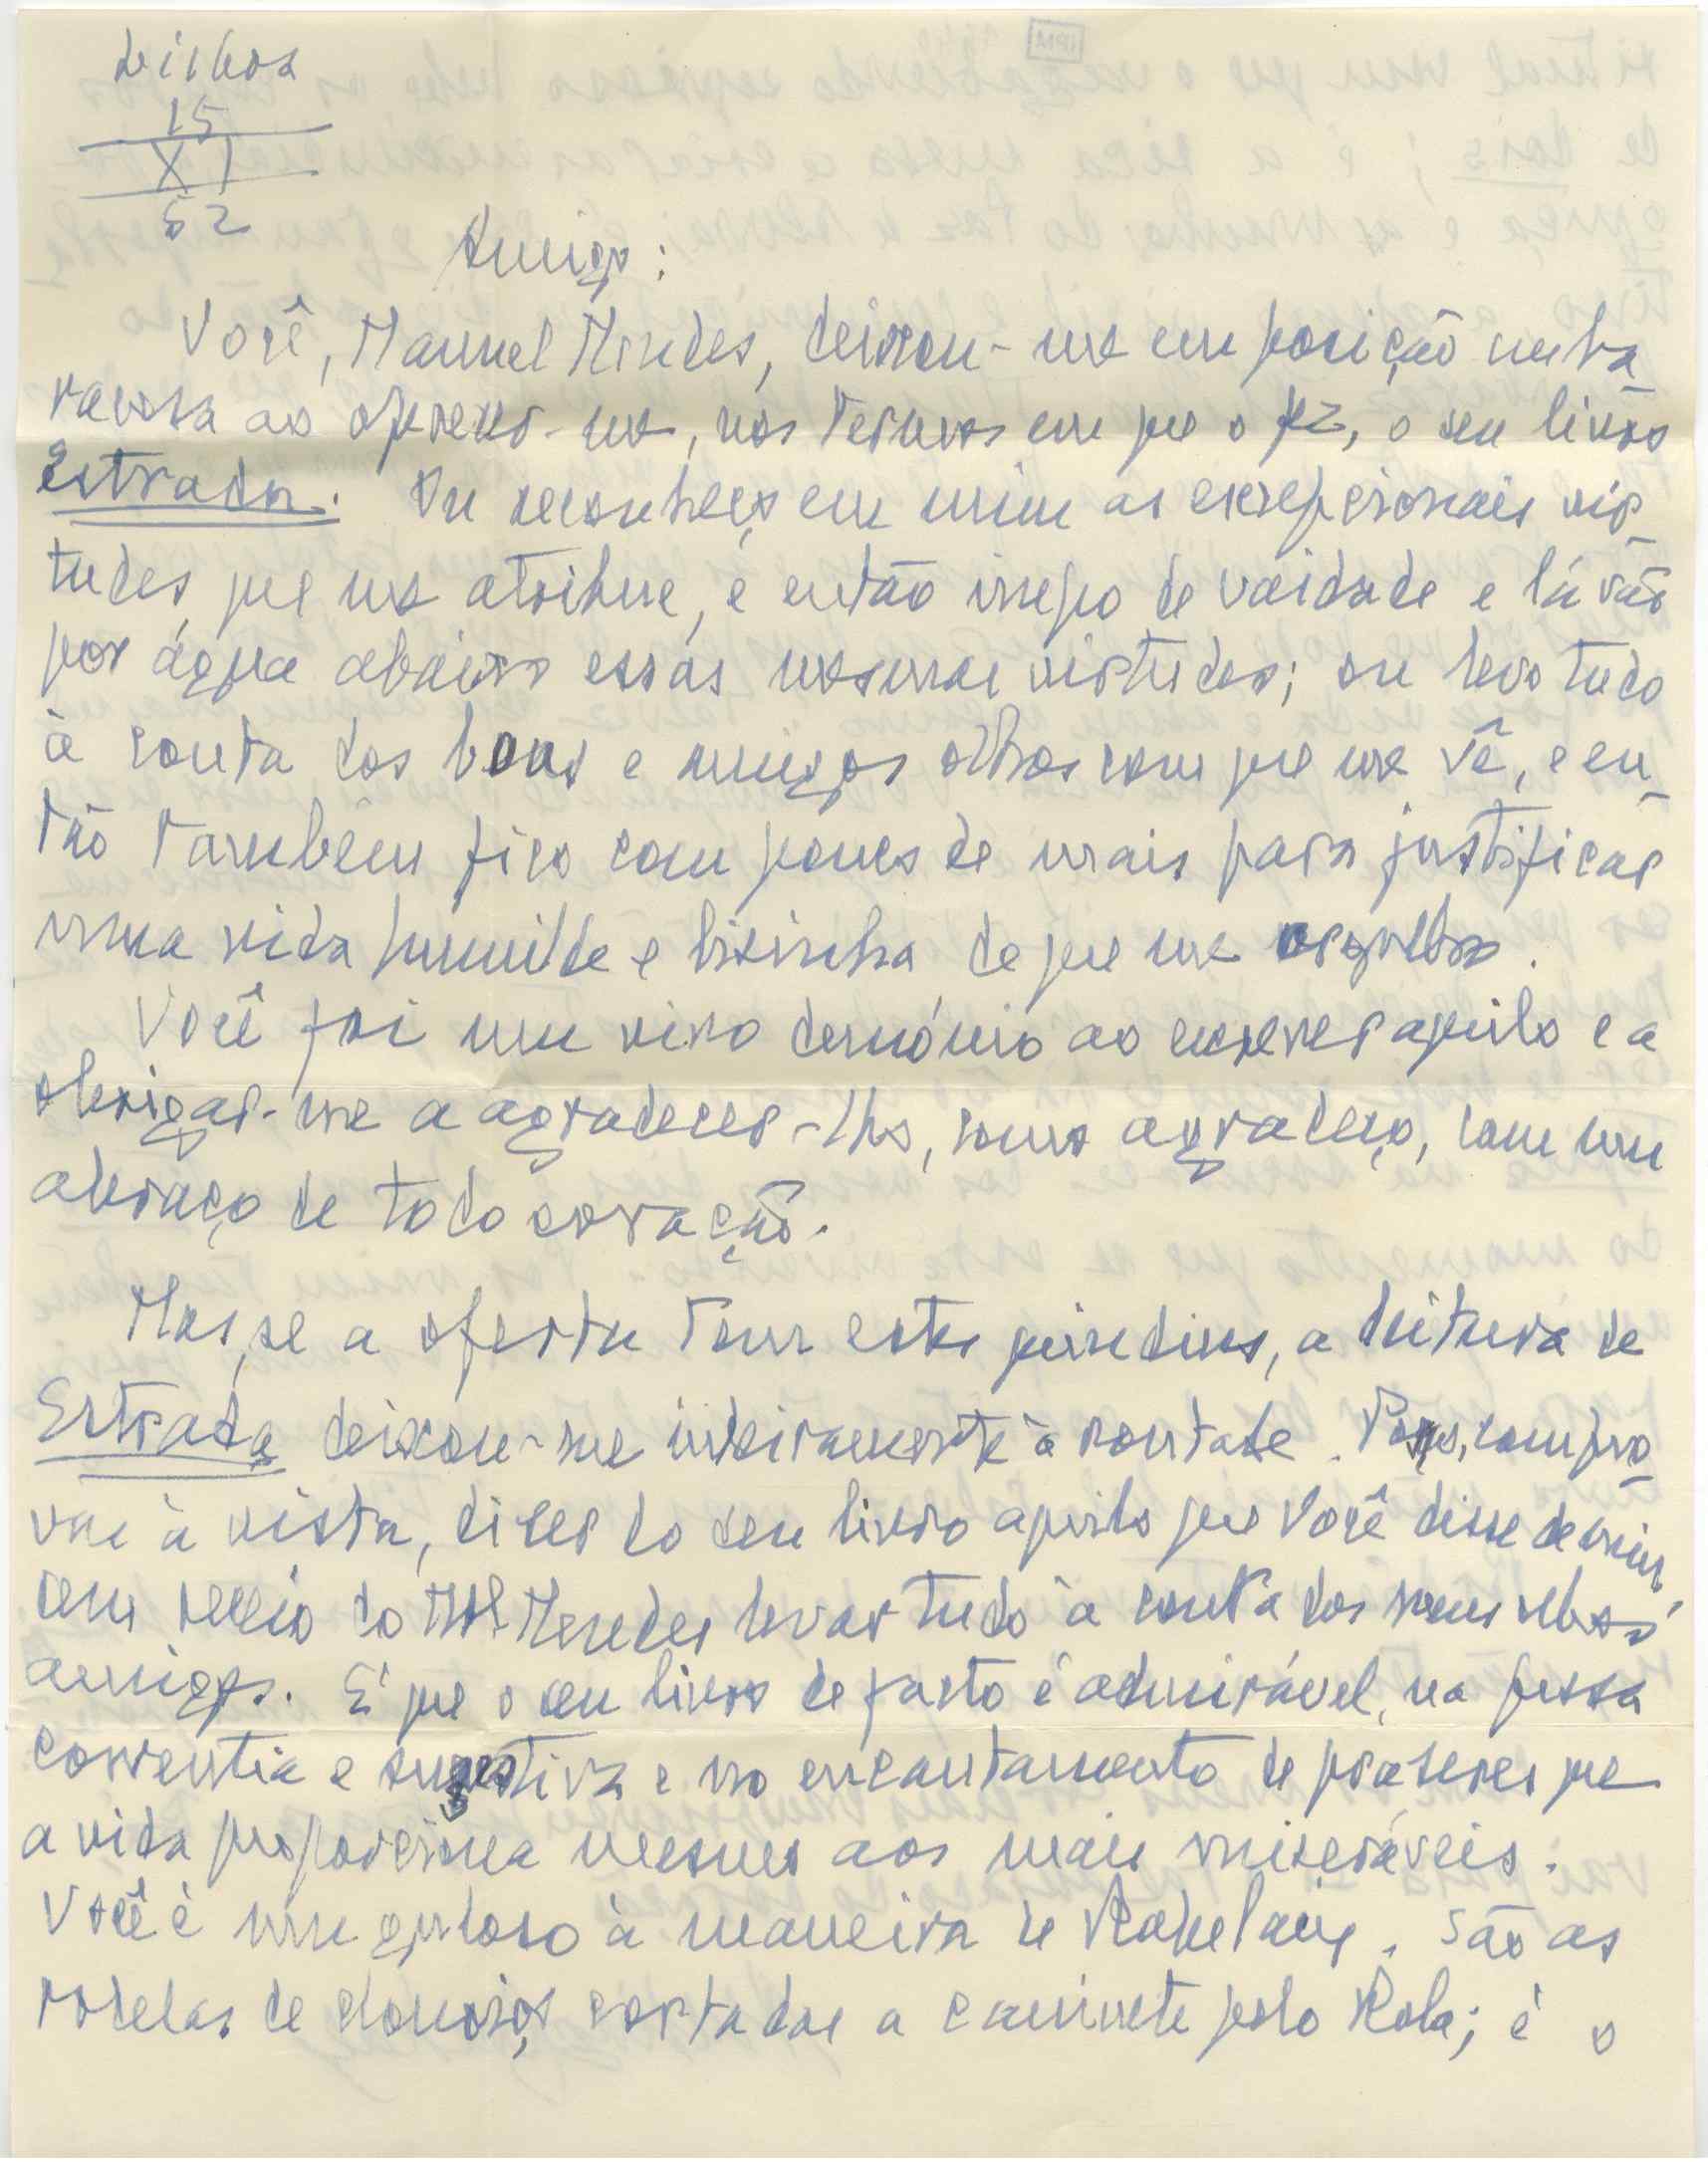 Lisboa
15
XI
52
Amigo:
Você, Manuel Mendes, deixou-me em posição emba
raçosa ao oferecer-me, nos termos em que o fez, o seu livro
Estrada. Ou reconheço em mim as excepcionais vir-
tudes, que me atribue, e então inepo de vaidade e lá vão
por água abaixo essas mesmas virtudes; ou levo tudo
à conta dos bons e amigos olhos com que me vê, e en-
tão também fico com pouco de mais para justificar
uma vida humilde e lisinha de que me orgulho.
Você foi um vivo demónio ao escrever aquilo e a
obrigar-me a agradecer-lho, como agradeço, com um
abraço de todo coração.
Mas, se a oferta tem estes, a leitura de
Estrada deixou-me inteiramente à vontade. Posso, com pro-
vas à vista, dizer do seu livro aquilo que Você disse de mim,
sem receio do Mel Mendes levar tudo à conta dos meus olhos
amigos. É que o seu livro de facto é admirável, na prosa
correntia e sugestiva e no encantamento de prazeres que
a vida proporciona mesmo aos mais miseráveis.
Você é um guloso à maneira de Rabelais. São as
rodelas de chouriço cortadas a canivete pelo Rola; é o